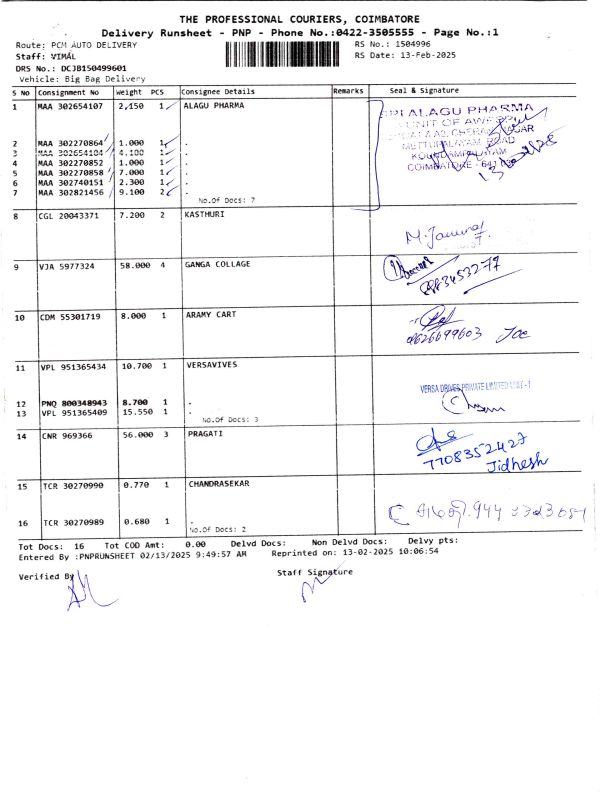 THE PROFESSIONAL COURIERS, COIMBATORE
Delivery Runsheet - PNP - Phone No.:0422-3505555 - Page No.:1
Route: PCM AUTO DELIVERY RS No.: 1504996
Staff: VIMAL RS Date: 13-Feb-2025
DRS No.: DCJB150499601
Vehicle: Big Bag Delivery
S No Consignment No Weight PCS Consignee Details Remarks Seal & Signature
1 MAA 302654107 2,150 1 ALAGU PHARMA
SRI ALAGU PHARMA
METTUPALAYAM ROAD
KOUNDAMPALAYAM
COIMBATORE - 641
2 MAA 302270864 1.000 1 .
3 MAA 302654104 4.100 1 .
4 MAA 302270852 1.000 1 .
5 MAA 302270858 7.000 1 .
6 MAA 302740151 2.300 1 .
7 MAA 302821456 9.100 2 .
No.Of Docs: 7
8 CGL 20043371 7.200 2 KASTHURI
9 VJA 5977324 58.000 4 GANGA COLLAGE
10 CDM 55301719 8.000 1 ARAMY CART
9626699603 Joe
11 VPL 951365434 10.700 1 VERSAVIVES
VERSA DRIVES PRIVATE LIMITED UNIT - 1
12 PNQ 800348943 8.700 1 .
13 VPL 951365409 15.550 1 .
No.Of Docs: 3
14 CNR 969366 56.000 3 PRAGATI
7708352427
Jidhesh
15 TCR 30270990 0.770 1 CHANDRASEKAR
16 TCR 30270989 0.680 1 .
No.Of Docs: 2
Tot Docs: 16 Tot COD Amt: 0.00 Delvd Docs: Non Delvd Docs: Delvy pts:
Entered By :PNPRUNSHEET 02/13/2025 9:49:57 AM Reprinted on: 13-02-2025 10:06:54
Verified By Staff Signature